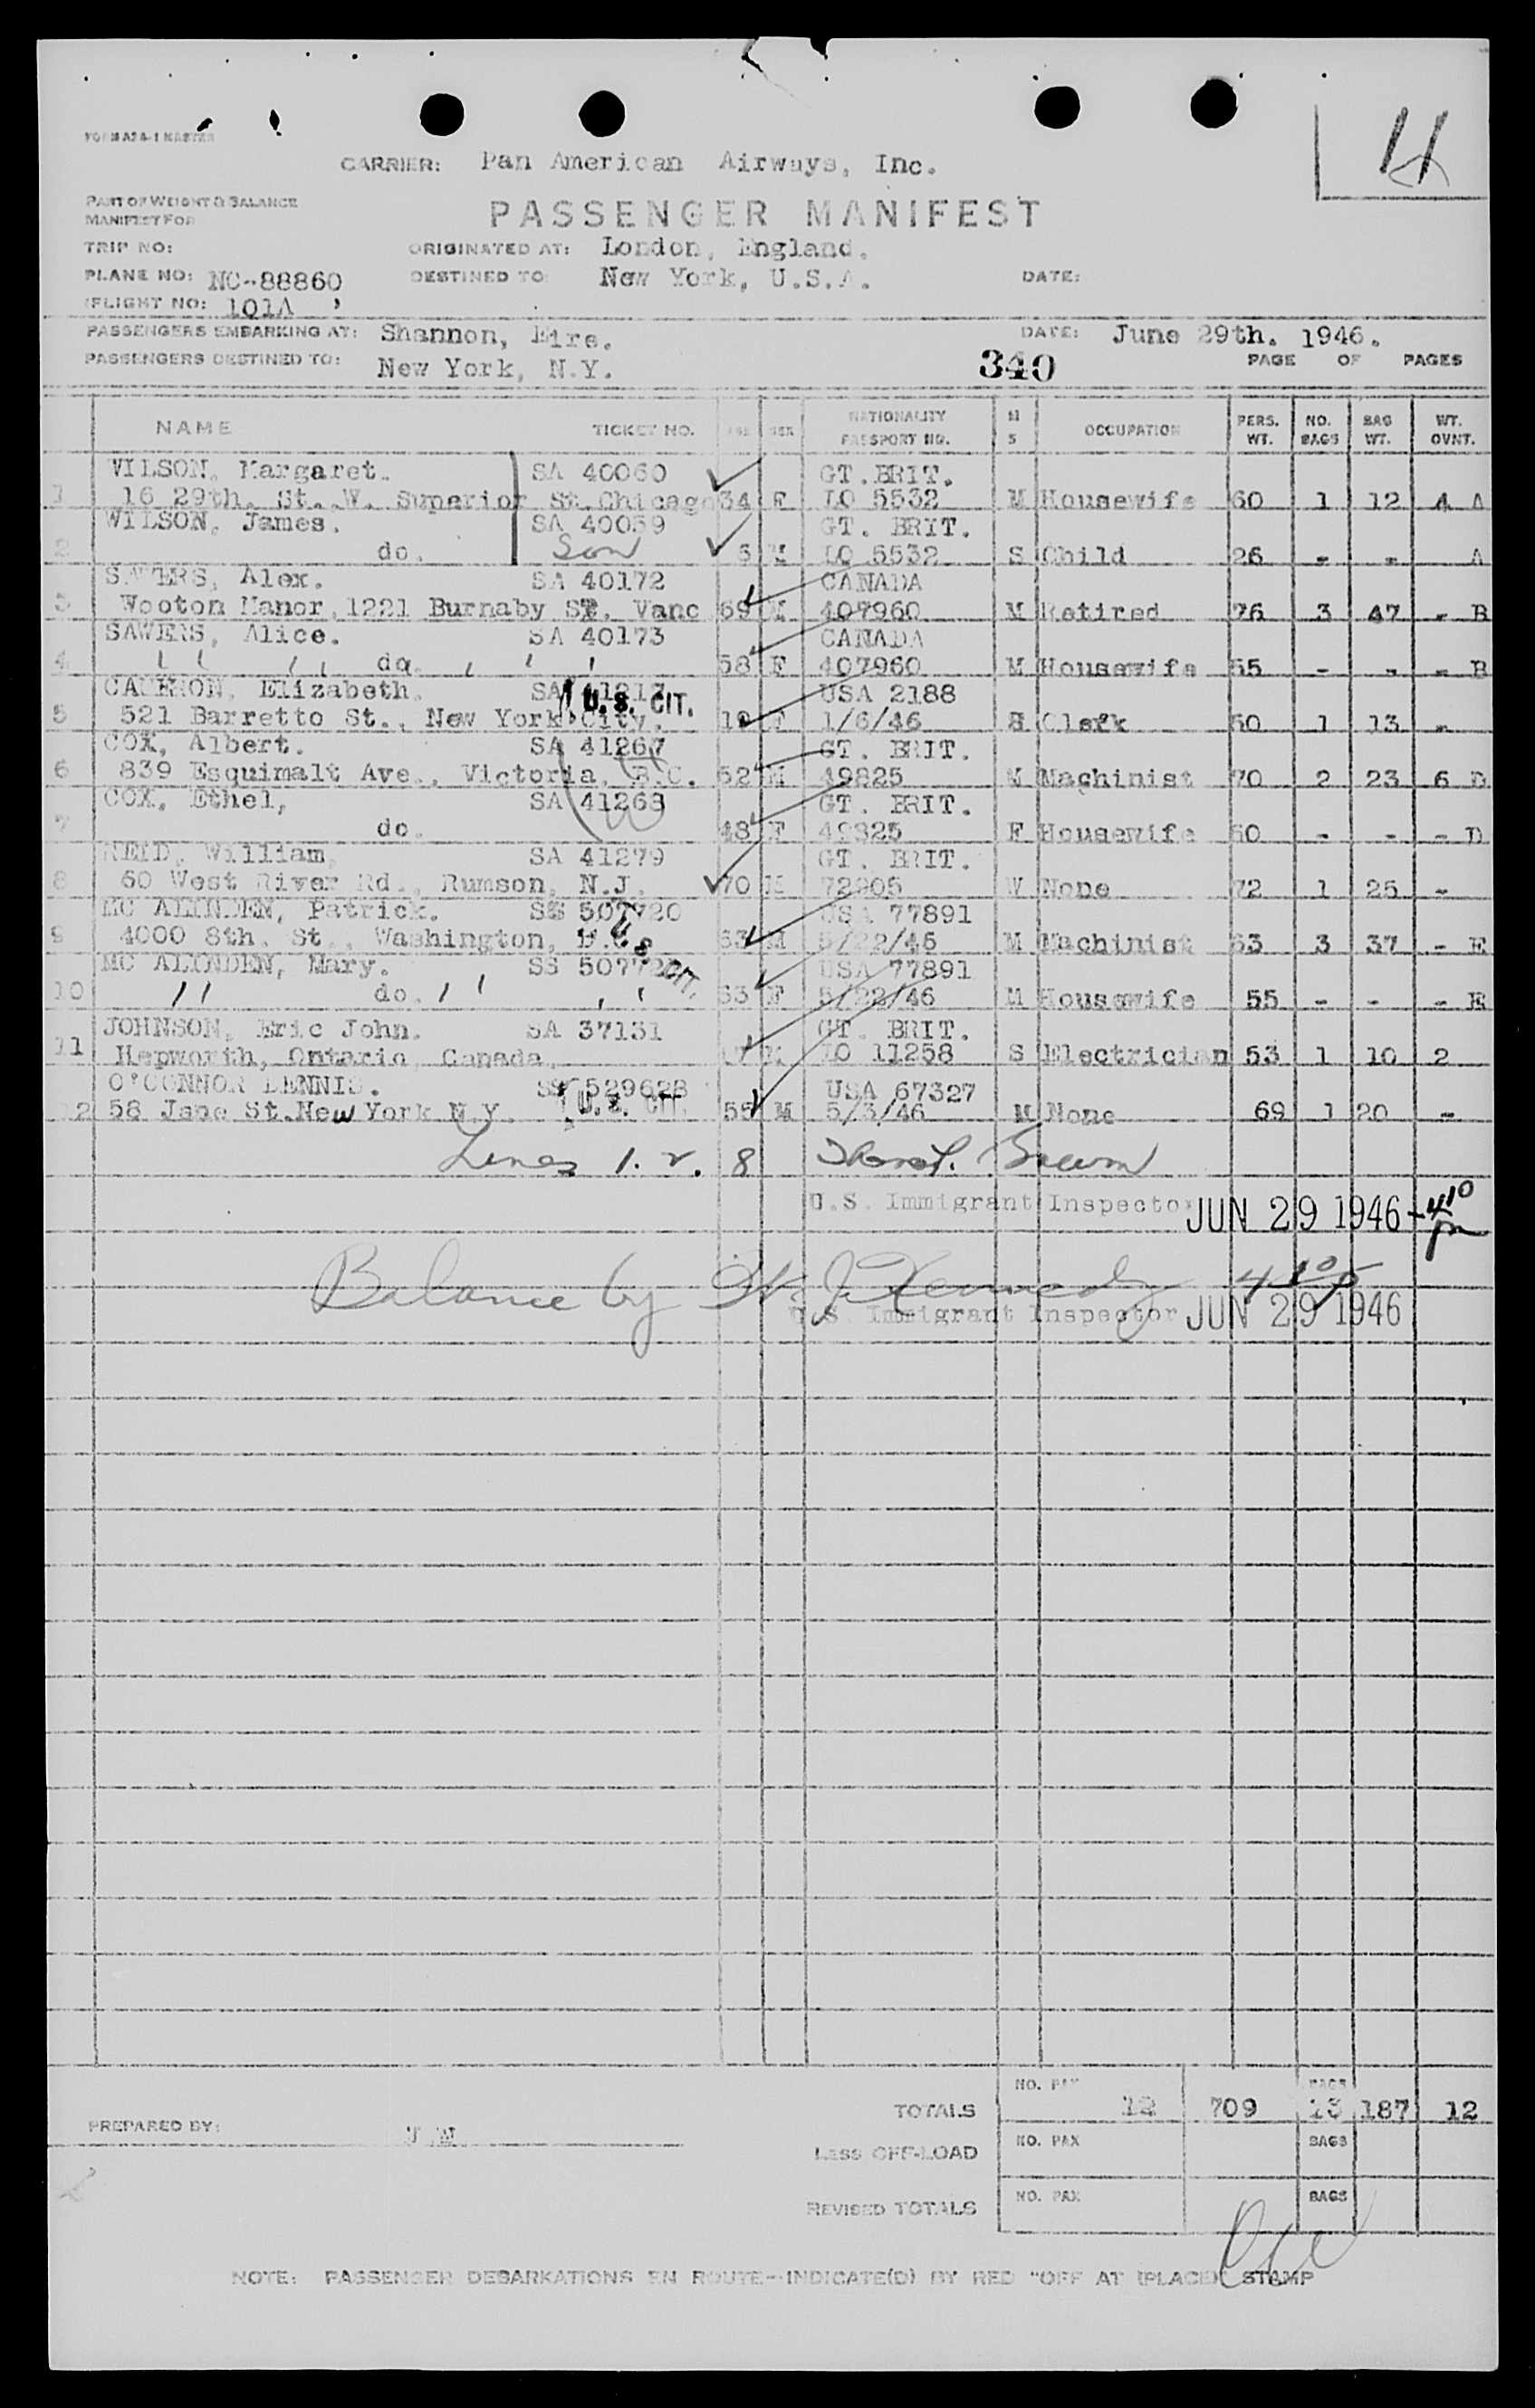 FORM ASA-1 MASTER
CARRIER: Pan American Airways, Inc.
PART OF WEIGHT & BALANCE
MANIFEST FOR
PASSENGER MANIFEST
TRIP NO: ORIGINATED AT: London, England.
PLANE NO: NC-88860 DESTINED TO: New York, U.S.A. DATE:
FLIGHT NO: 101A
PASSENGERS EMBARKING AT: Shannon, Eire. DATE: June 29th. 1946.
PASSENGERS DESTINED TO: New York, N.Y. 340 PAGE OF PAGES
NAME TICKET NO. AGE SEX NATIONALITY PASSPORT NO. M S OCCUPATION PERS. WT. NO. BAGS BAG WT. WT. OVNT.
WILSON, Margaret. SA 40060 GT. BRIT.
1 16 29th. St. W. Superior St. Chicago 34 F LO 5532 M Housewife 60 1 12 4 A
WILSON, James. SA 40059 GT. BRIT.
2 do. Son 5 M LO 5532 S Child 26 - - A
SAWERS, Alex. SA 40172 CANADA
3 Wooton Manor, 1221 Burnaby St. Vanc 69 M 407960 M Retired 76 3 47 - B
SAWERS, Alice. SA 40173 CANADA
4 " " do. " " 58 F 407960 M Housewife 55 - - - B
Elizabeth. SA U.S. CIT. USA 2188
5 521 Barretto St., New York City. F 1/6/46 S Clerk 60 1 13 -
COX, Albert. SA 41267 GT. BRIT.
6 839 Esquimalt Ave., Victoria, B.C. 52 M 49825 M Machinist 70 2 23 6 D
COX, Ethel, SA 41268 GT. BRIT.
7 do. 48 F 49825 F Housewife 60 - - - D
REID, William, SA 41279 GT. BRIT.
8 60 West River Rd., Rumson, N.J. 70 M 72905 W None 72 1 25 -
MC ALINDEN, Patrick. SS 507720 USA 77891
9 4000 8th. St., Washington, D.C. U.S. CIT. 63 M 5/22/46 M Machinist 53 3 37 - E
MC ALINDEN, Mary. SS USA 77891
10 " do. " " 63 F 5/22/46 M Housewife 55 - - - E
JOHNSON, Eric John. SA 37131 GT. BRIT.
11 Hepworth, Ontario, Canada. M LO 11258 S Electrician 53 1 10 2
O'CONNOR DENNIS. SS 529628 USA 67327
12 58 Jane St. New York N.Y. U.S. CIT. 55 M 5/3/46 M None 69 1 20 -
Lines 1. 2. 8 Brown
U.S. Immigrant Inspector JUN 29 1946 - 4 10 pm
Balance by W. J. Kennedy 4 10 p
U.S. Immigrant Inspector JUN 29 1946
TOTALS NO. PAX 12 709 BAGS 13 187 12
PREPARED BY:
LESS OFF-LOAD NO. PAX BAGS
REVISED TOTALS NO. PAX BAGS
NOTE: PASSENGER DEBARKATIONS EN ROUTE--INDICATE(D) BY RED "OFF AT (PLACE)" STAMP